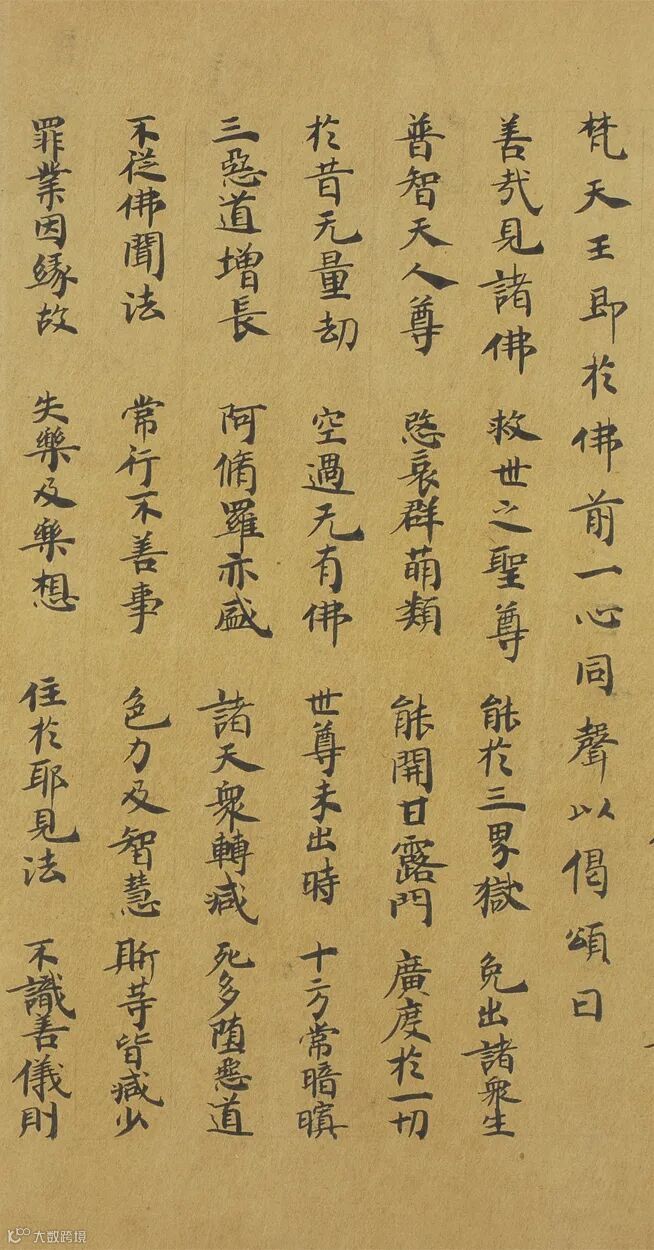 梵天王即於佛前一心同聲以偈頌曰
善哉見諸佛 救世之聖尊 能於三界獄 免出諸衆生
普智天人尊 愍哀群萌類 能開甘露門 廣度於一切
於昔无量劫 空過无有佛 世尊未出時 十方常暗瞑
三惡道增長 阿脩羅亦盛 諸天衆轉減 死多墮惡道
不從佛聞法 常行不善事 色力及智慧 斯等皆減少
罪業因緣故 失樂及樂想 住於耶見法 不識善儀則
大数跨境